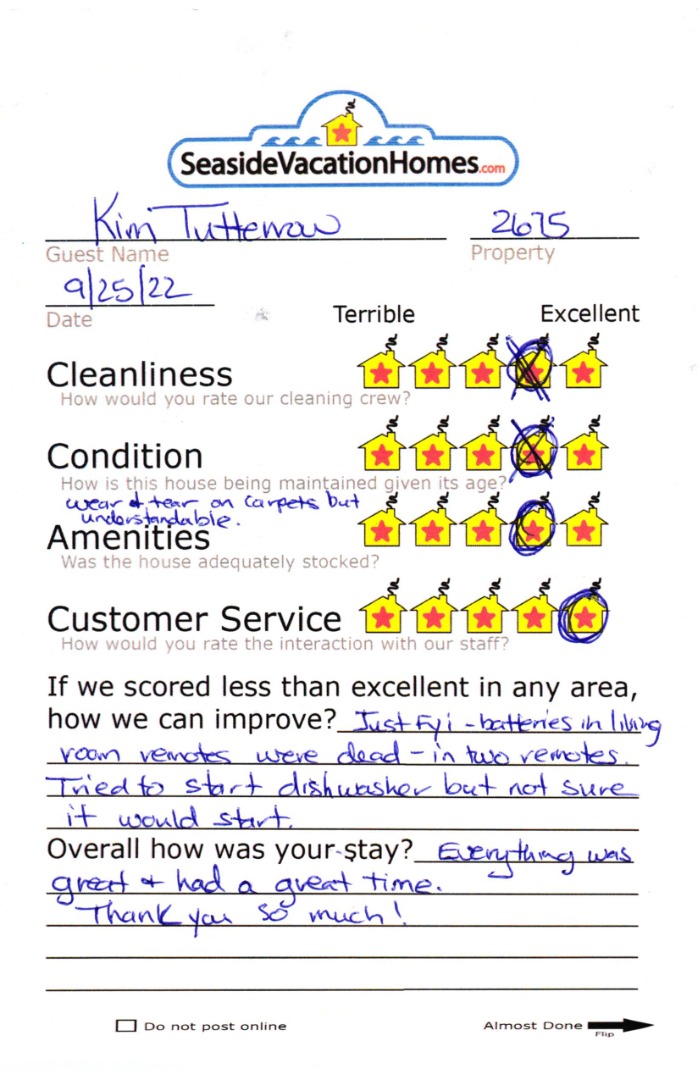 SeasideVacationHomes.com
Kim Tutterrow 2675
Guest Name Property
9/25/22
Date Terrible Excellent
Cleanliness
How would you rate our cleaning crew?
Condition
How is this house being maintained given its age?
wear & tear on carpets but
understandable.
Amenities
Was the house adequately stocked?
Customer Service
How would you rate the interaction with our staff?
If we scored less than excellent in any area,
how we can improve? Just Fyi - batteries in living
room remotes were dead - in two remotes.
Tried to start dishwasher but not sure
it would start.
Overall how was your stay? Everything was
great & had a great time.
Thank you so much!
Do not post online Almost Done
Flip